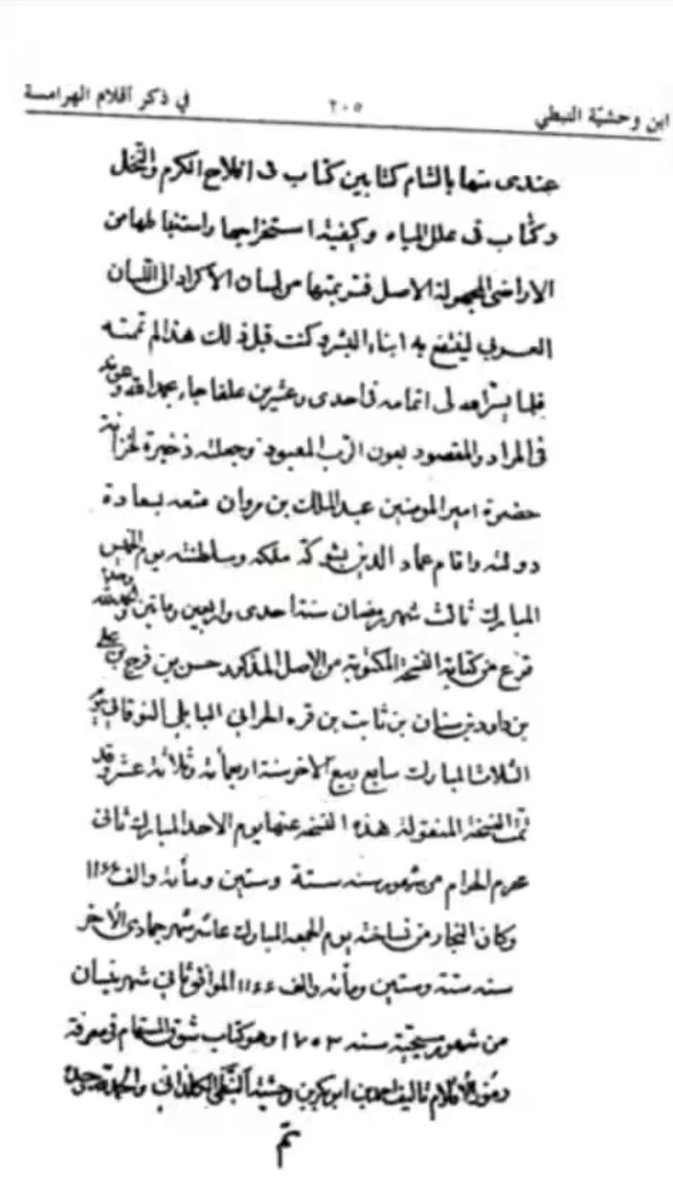 ابن وحشيّة النبطي ٢٠٥ في ذكر أقلام الهرامسة
عندى منها بالشام كتابين كتاب فى افلاح الكرم والنخل
وكتاب فى علل المياه وكيفية استخراجها واستنباطها من
الاراضى المجهولة الاصل فترجمتها من لسان الاكراد الى اللسان
العربي لينتفع به ابناء البشر وكنت قبل ذلك هذا لم تمته
فلما يسّر الله لى اتمامه فى احدى وعشرين علفا جاء بحمد الله وعونه
فى المراد والمقصود بعون الرب المعبود وجعلته ذخيرة لخزانة
حضرة امير المومنين عبد الملك بن مروان متعه بسعادة
دولته واقام عماد الدين بشوكة ملكه وسلطنته يوم الخميس
المبارك ثالث شهر رمضان سنة احدى واربعين وماتين والحمد لله
فرغ من كتابة النسخة المكتوبة من الاصل المذكور حسن بن فرج بن على
بن داود بن سنان بن ثابت بن قره الحراني البابلي النوقاني يوم
الثلاث المبارك سابع ربيع الاخر سنة اربعمائة وثلاثة عشر وقد
تمت النسخة المنقولة هذه النسخه عنها يوم الاحد المبارك ثانى
محرم الحرام من شهور سنه ستة وستين ومأة والف ١١٦٦
وكان النجاز من نساخته يوم الجمعه المبارك عاشر شهر جمادى الآخر
سنه ستة وستين ومأة والف ١١٦٦ الموافق ثاني شهر نيسان
من شهور مسيحية سنه ١٧٥٣ وهو كتاب شوق المستهام فى معرفة
رموز الأقلام تاليف احمد بن ابو بكر بن وحشية النبطي الكلداني والحمد لله
تم